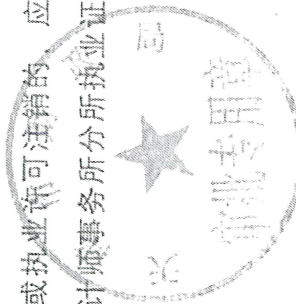 或执业许可注销的 应
计师事务所分所执业证
专用章